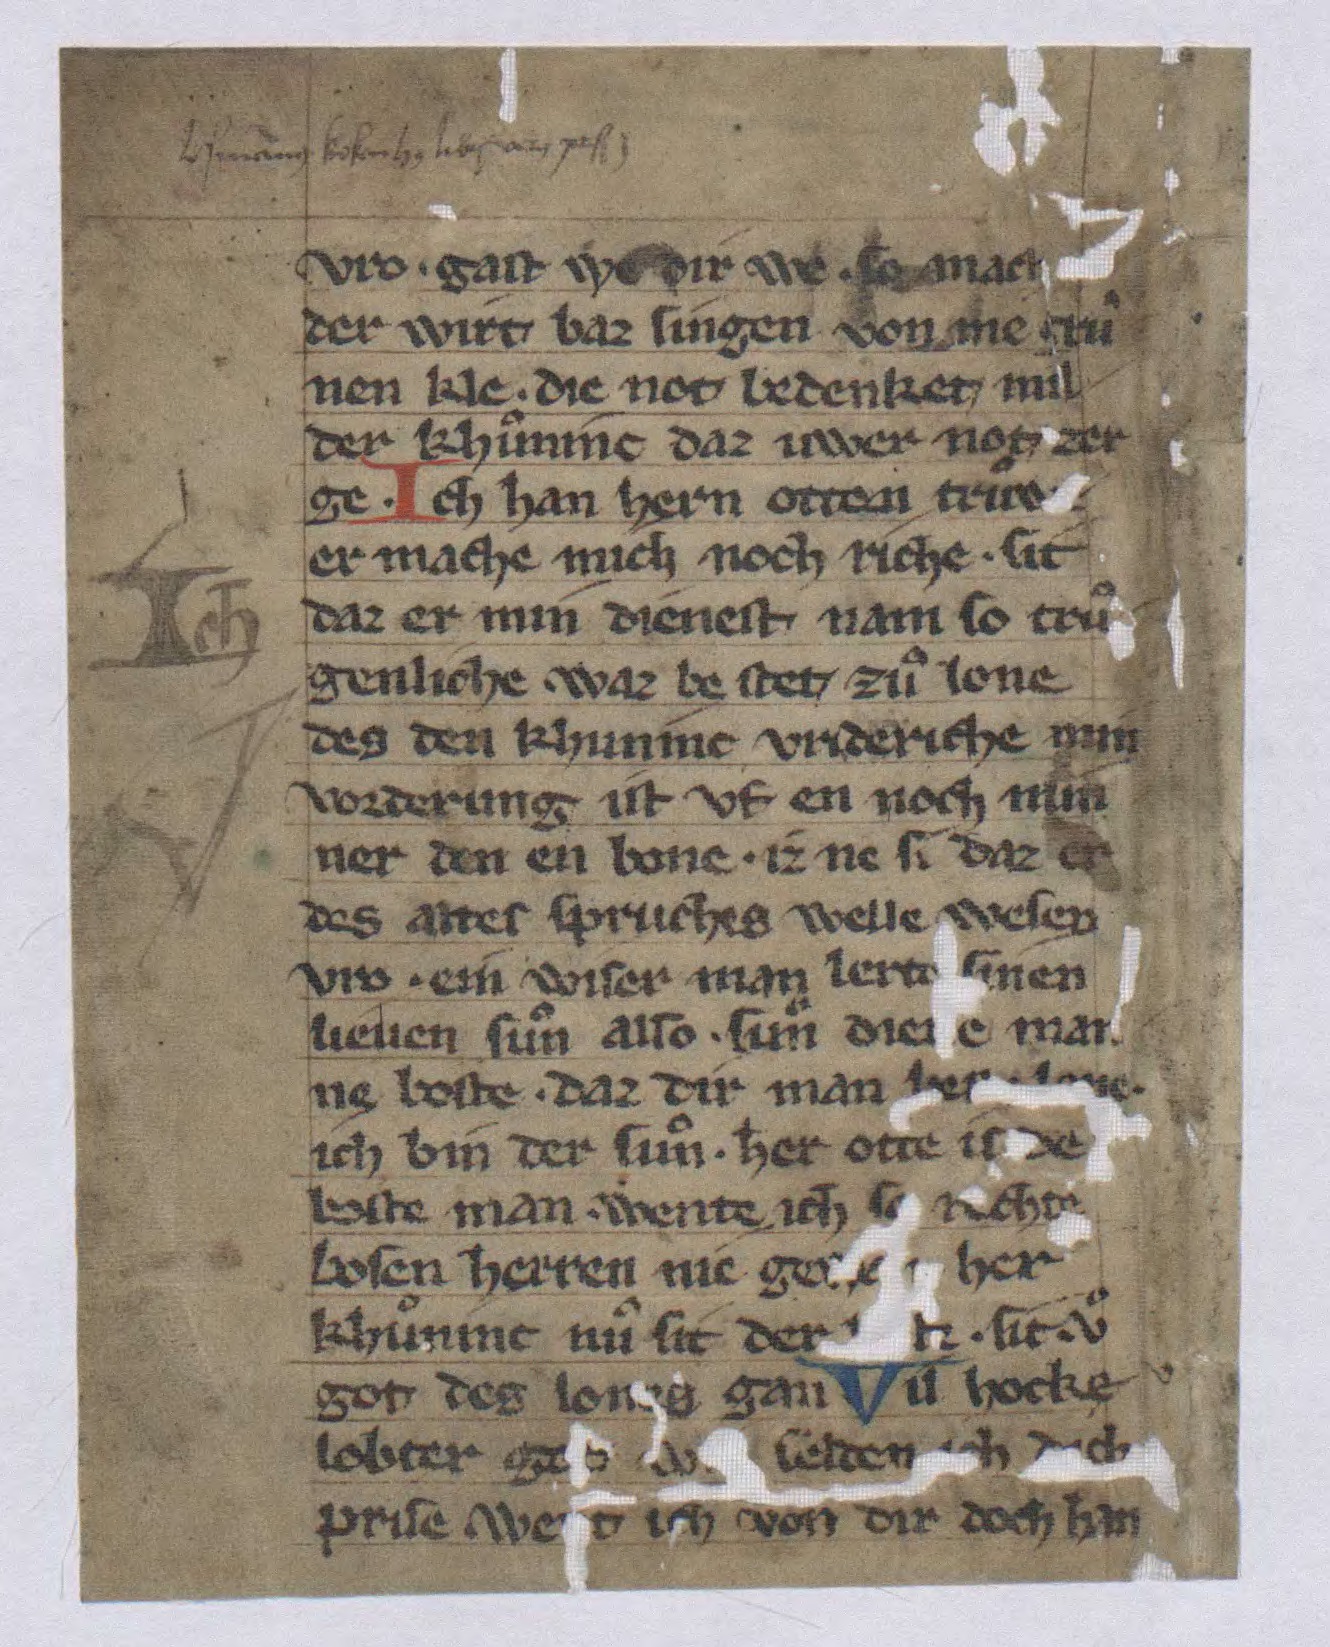 vro · gast we dir we · so mach
der wirt baz singen von me gruͦ
nen kle · die not bedenket mil
der khuͦninc daz uwer not zer
ge · Ich han hern otten
er mache mich noch riche · sit
daz er min dienest nam so truͦ
genliche · waz be stet zuͦ lone
des den khuninc vrideriche min
vorderung ist vf en noch min
ner den en bone · iz ne si daz er
des altes spruches welle wesen
vro · ein wiser man lerte sinen
lieuen suͦn also · suͦn diene man
ne boste · daz dir man lone ·
ich bin der suͦn · her otte is de
boste man · wente ich so rechte
bosen herren nie her
khuͦninc nuͦ sit der · sit · vͦ
got des lones gan Vil hocke
lobter got selden ich dich
prise went ich von dir doch han
Ich